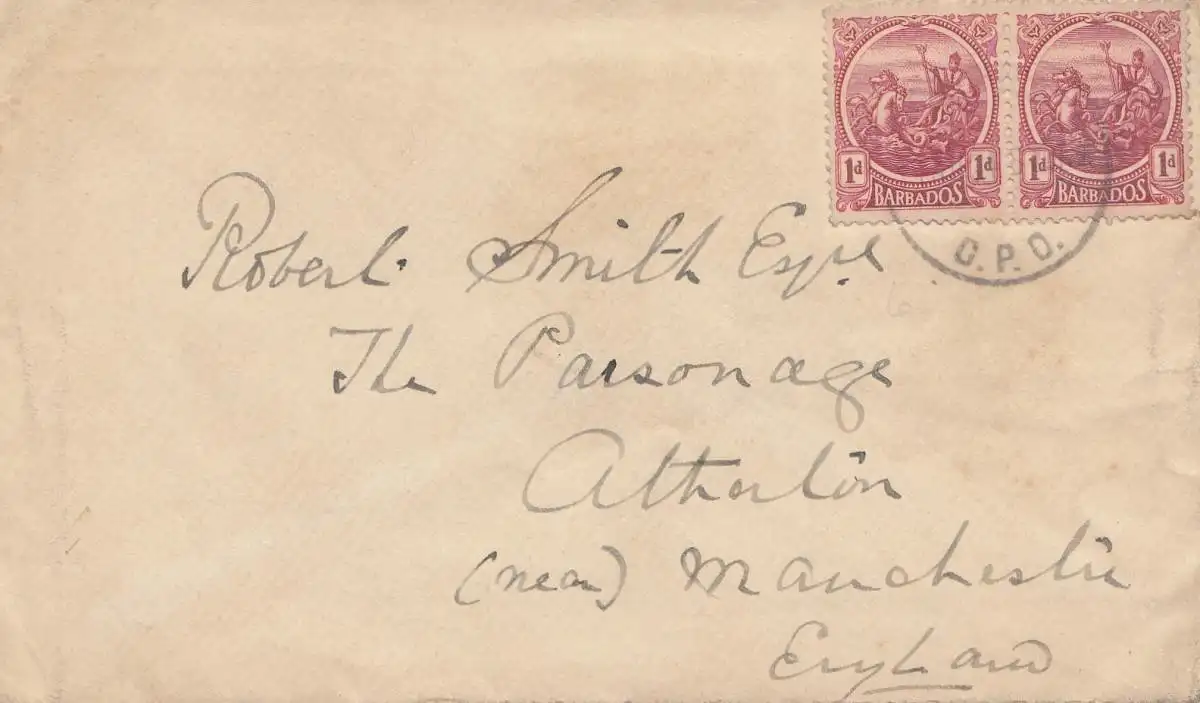 1d 1d
BARBADOS
1d 1d
BARBADOS
G.P.O.
Robert Smith Esqre
The Parsonage
Atherton
(near) Manchester
England